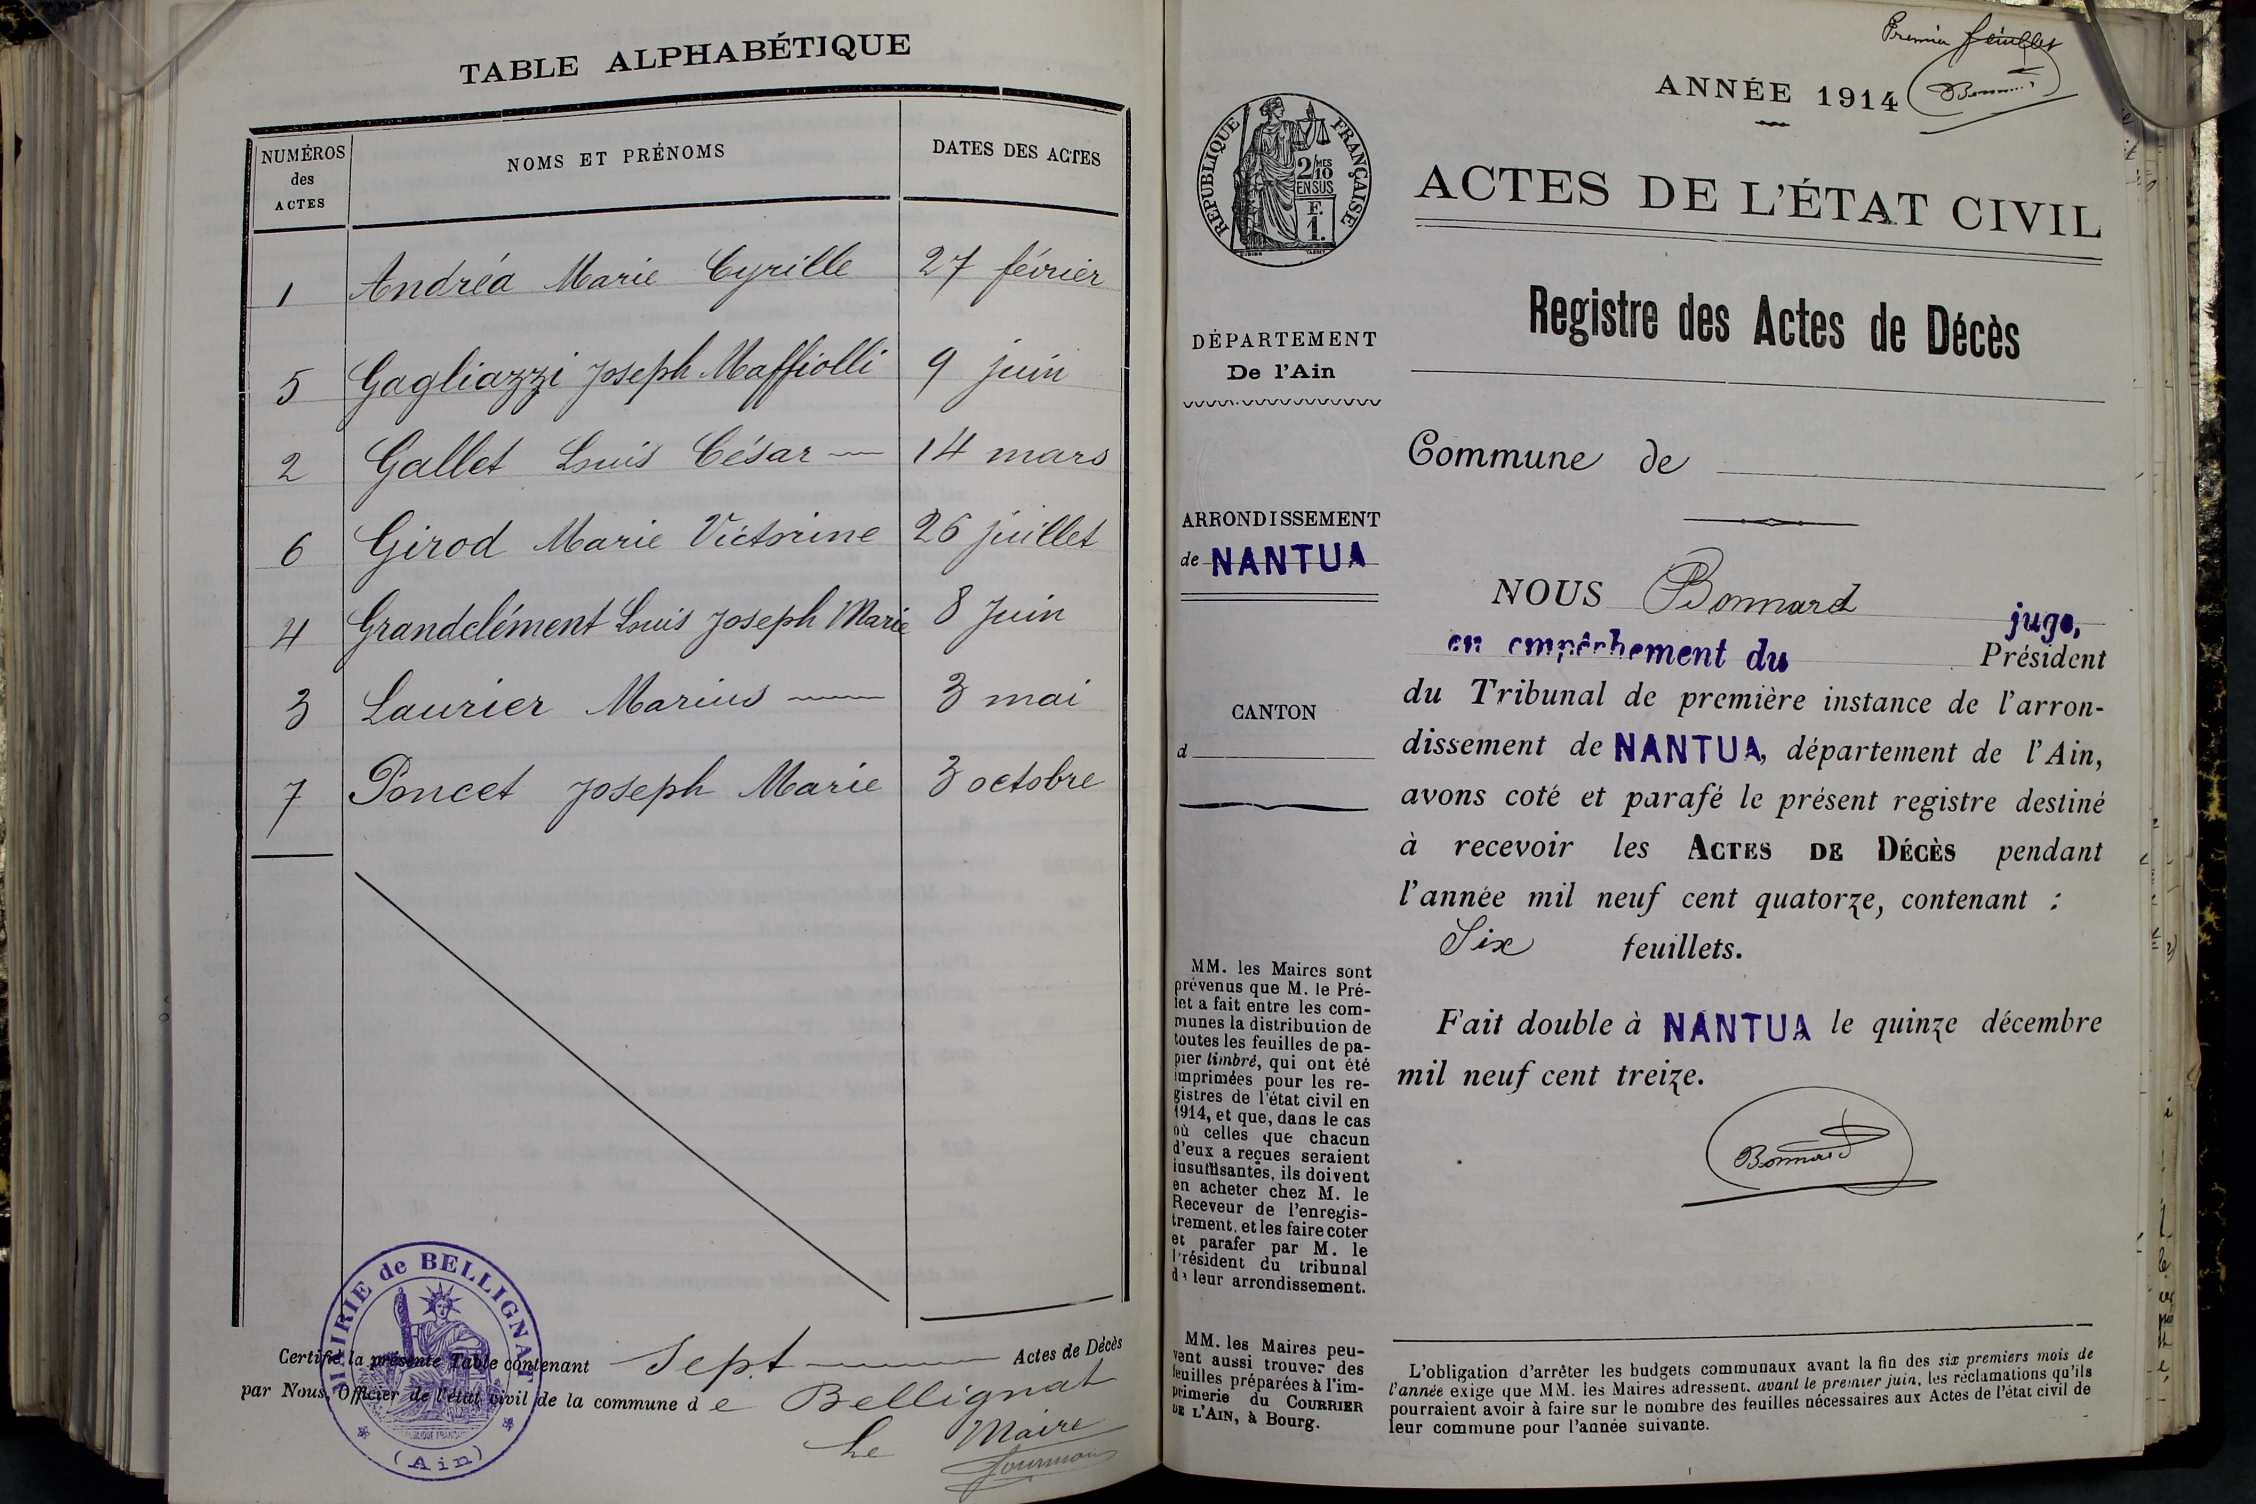 TABLE ALPHABÉTIQUE
NUMÉROS
des
ACTES
NOMS ET PRÉNOMS
DATES DES ACTES
1 Andréa Marie Cyrille 27 février
5 Gagliazzi Joseph Maffiolli 9 juin
2 Gallet Louis César 14 mars
6 Girod Marie Victorine 26 juillet
4 Grandclément Louis Joseph Marie 8 Juin
3 Laurier Marius 3 mai
7 Poncet Joseph Marie 3 octobre
MAIRIE de BELLIGNAT
RÉPUBLIQUE FRANÇAISE
(Ain)
Certifié la présente Table contenant Sept Actes de Décès
par Nous, Officier de l'état civil de la commune de Bellignat
Le Maire
Premier feuillet
Bonnard
ANNÉE 1914
RÉPUBLIQUE FRANÇAISE
2/10
MES
EN SUS
F.
1.
ACTES DE L'ÉTAT CIVIL
Registre des Actes de Décès
DÉPARTEMENT
De l'Ain
Commune de
ARRONDISSEMENT
de NANTUA
CANTON
d
NOUS Bonnard juge,
en empêchement du Président
du Tribunal de première instance de l'arron-
dissement de NANTUA, département de l'Ain,
avons coté et parafé le présent registre destiné
à recevoir les ACTES DE DÉCÈS pendant
l'année mil neuf cent quatorze, contenant :
Six feuillets.
Fait double à NANTUA le quinze décembre
mil neuf cent treize.
Bonnard
MM. les Maires sont
prévenus que M. le Pré-
fet a fait entre les com-
munes la distribution de
toutes les feuilles de pa-
pier timbré, qui ont été
imprimées pour les re-
gistres de l'état civil en
1914, et que, dans le cas
où celles que chacun
d'eux a reçues seraient
insuffisantes, ils doivent
en acheter chez M. le
Receveur de l'enregis-
trement, et les faire coter
et parafer par M. le
Président du tribunal
de leur arrondissement.
MM. les Maires peu-
vent aussi trouver des
feuilles préparées à l'im-
primerie du COURRIER
DE L'AIN, à Bourg.
L'obligation d'arrêter les budgets communaux avant la fin des six premiers mois de
l'année exige que MM. les Maires adressent, avant le premier juin, les réclamations qu'ils
pourraient avoir à faire sur le nombre des feuilles nécessaires aux Actes de l'état civil de
leur commune pour l'année suivante.